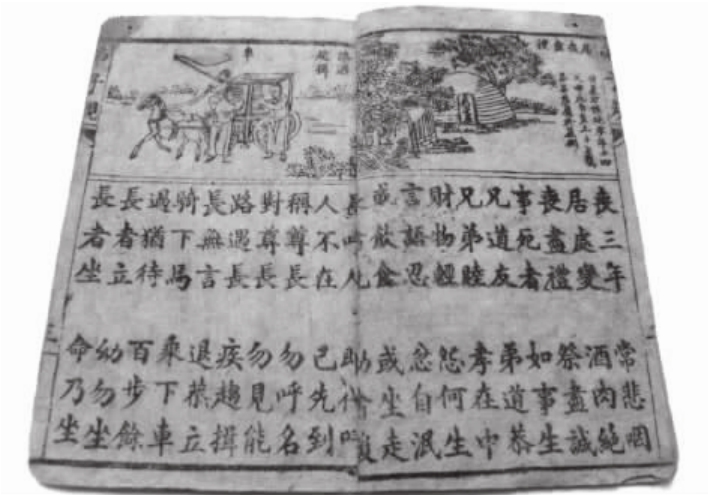 居喪盡禮
車
路遇
趨揖
喪三年 常悲咽
居處變 酒肉絕
喪盡禮 祭盡誠
事死者 如事生
兄道友 弟道恭
兄弟睦 孝在中
財物輕 怨何生
言語忍 忿自泯
或飲食 或坐走
長呼人 即代叫
人不在 己先到
稱尊長 勿呼名
對尊長 勿見能
路遇長 疾趨揖
長無言 退恭立
騎下馬 乘下車
過猶待 百步餘
長者立 幼勿坐
長者坐 命乃坐